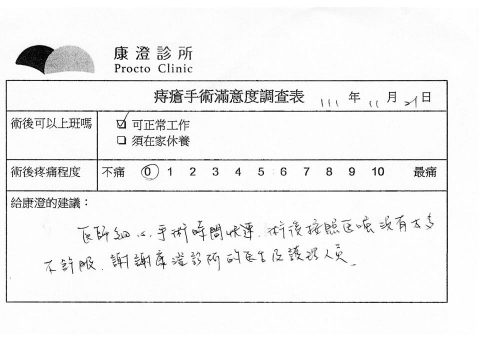 康澄診所
Procto Clinic
痔瘡手術滿意度調查表 111 年 11 月 21 日
術後可以上班嗎 ☑ 可正常工作
☐ 須在家休養
術後疼痛程度 不痛 0 1 2 3 4 5 6 7 8 9 10 最痛
給康澄的建議：
医師細心,手術時間快速,術後按照医嘱没有太多
不舒服,謝謝康澄診所的医生及護理人員.